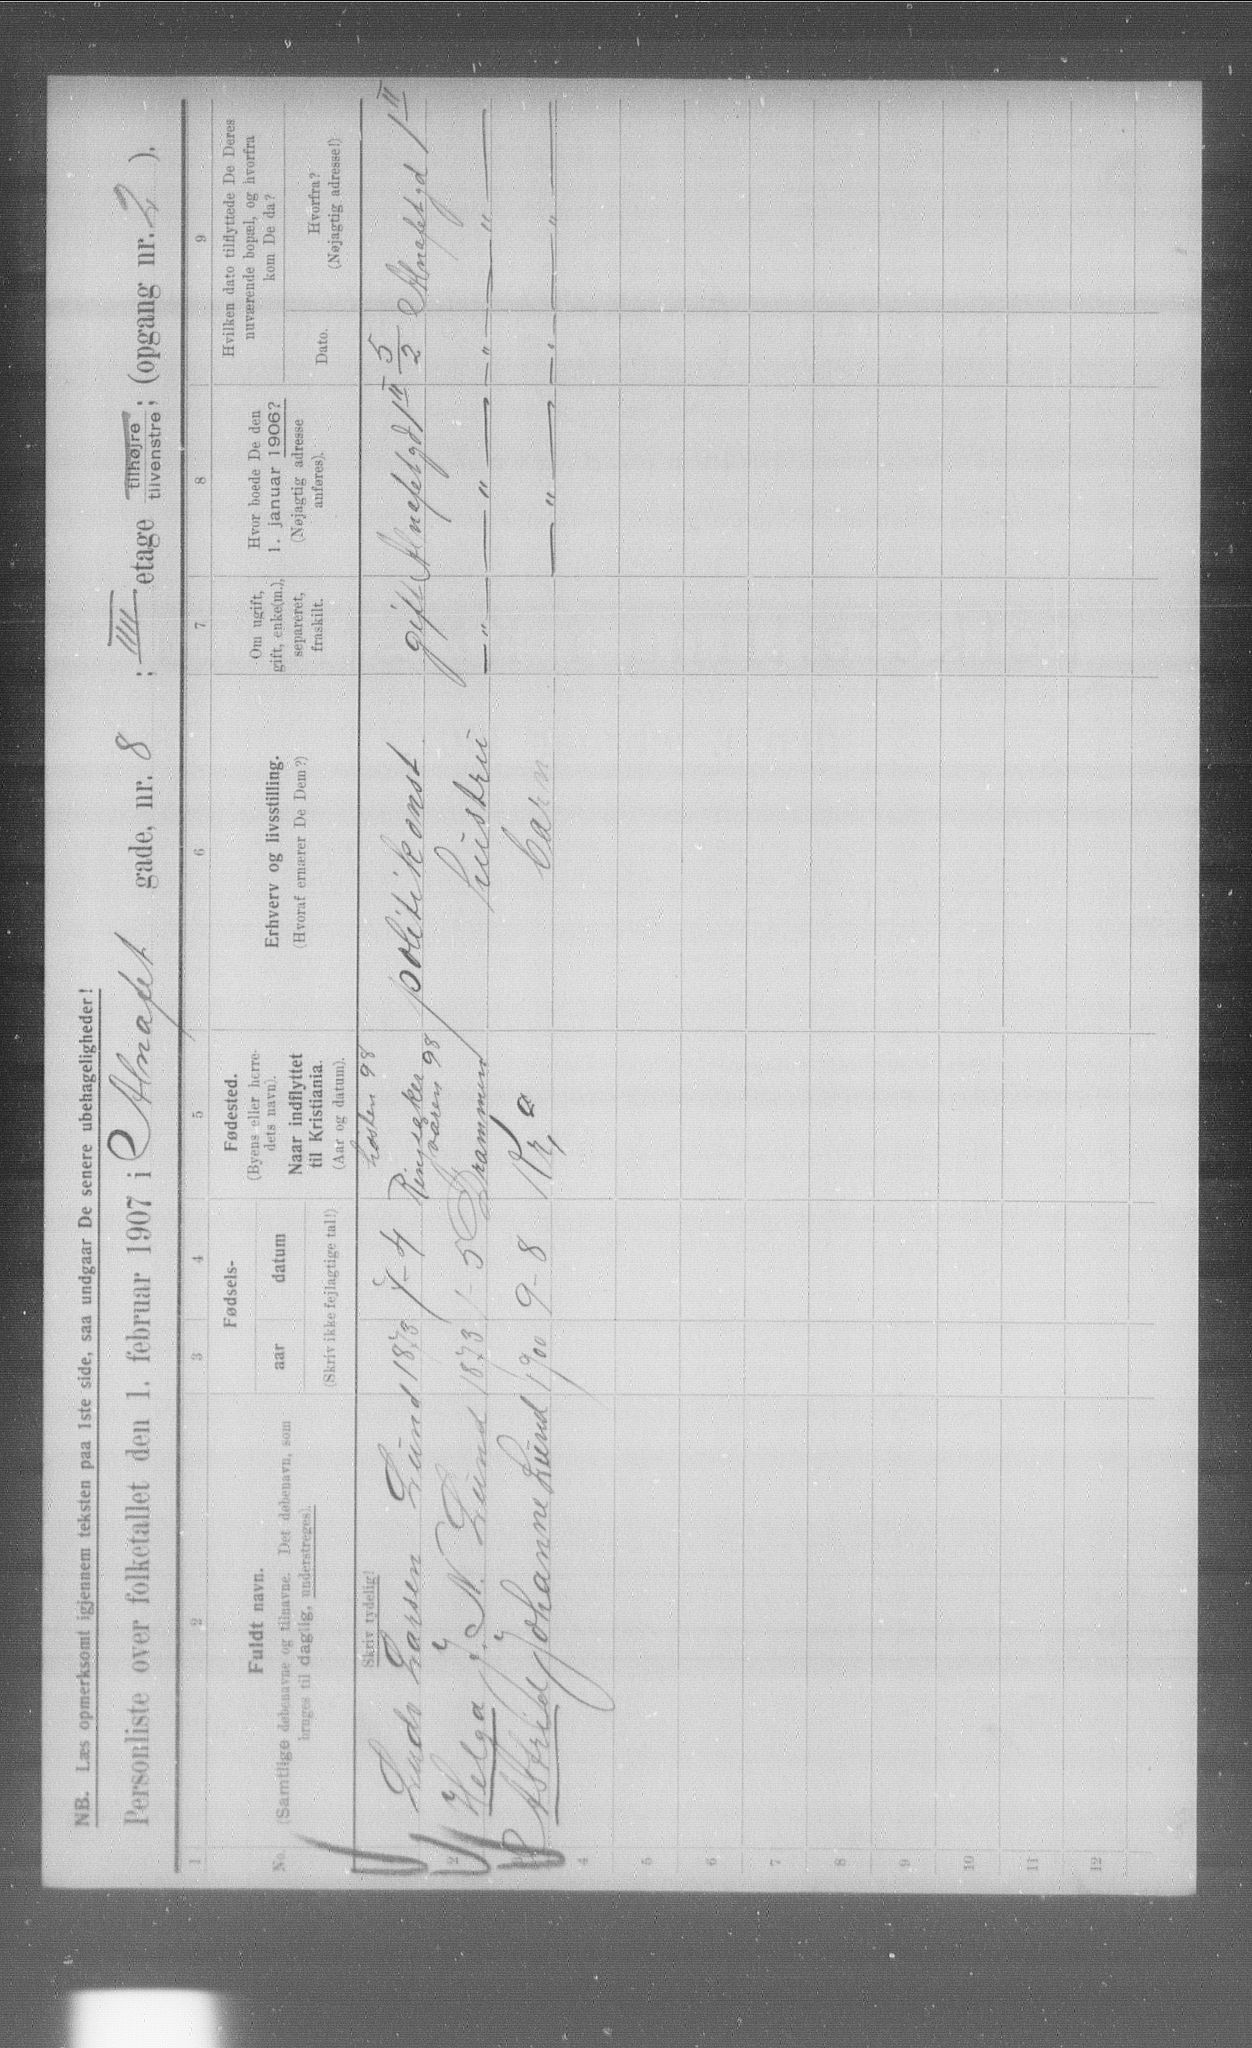 NB. Læs opmerksomt igjennem teksten paa 1ste side, saa undgaar De senere ubehageligheder!
Personliste over folketallet den 1. februar 1907 i Alnafet gade, nr. 8 ; III etage tilhøjre tilvenstre ; (opgang nr. 2 ).
1 2 3 4 5 6 7 8 9
No.
Fuldt navn.
(Samtlige døbenavne og tilnavne. Det døbenavn, som
bruges til daglig, understreges).
Fødsels-
aar datum
(Skriv ikke fejlagtige tal!)
Fødested.
(Byens eller herre-
dets navn).
Naar indflyttet
til Kristiania.
(Aar og datum).
Erhverv og livsstilling.
(Hvoraf ernærer De Dem?)
Om ugift,
gift, enke(m.),
separeret,
fraskilt.
Hvor boede De den
1. januar 1906?
(Nøjagtig adresse
anføres).
Hvilken dato tilflyttede De Deres
nuværende bopæl, og hvorfra
kom De da?
Dato.
Hvorfra?
(Nøjagtig adresse!)
Skriv tydelig!
høsten 98
Ludv Larsen Lund 1873 7-4 Ringsaker politikonst gift Alnafetgd 1 II 5/2 Alnafetgd 1 II
våren 98
2 Helga J. N. Lund 1873 1-5 Drammen hustru — " — — " — — " — — " —
Astrid Johanne Lund 1900 9-8 Kr.a barn — " — — " — — " —
4
5
6
7
8
9
10
11
12